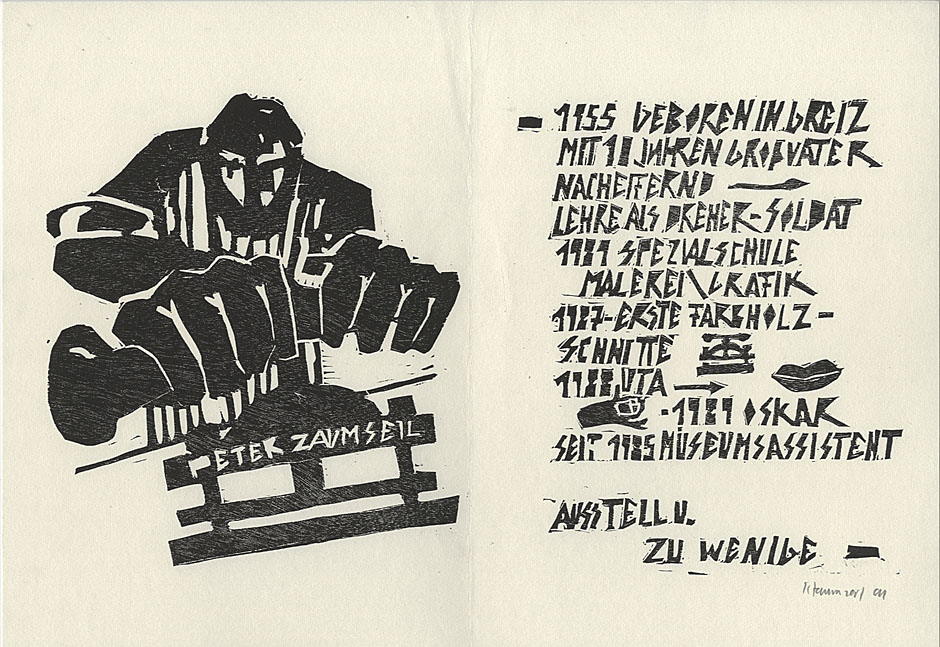 PETER ZAUMSEIL
1955 GEBOREN IN GREIZ
MIT 11 JAHREN GROßVATER
NACHEIFERND
LEHRE ALS DREHER-SOLDAT
1981 SPEZIALSCHULE
MALEREI\GRAFIK
1987-ERSTE FARBHOLZ-
SCHNITTE
1988 UTA
·1989 OSKAR
SEIT 1985 MUSEUMSASSISTENT
AUSSTELLU.
ZU WENIGE